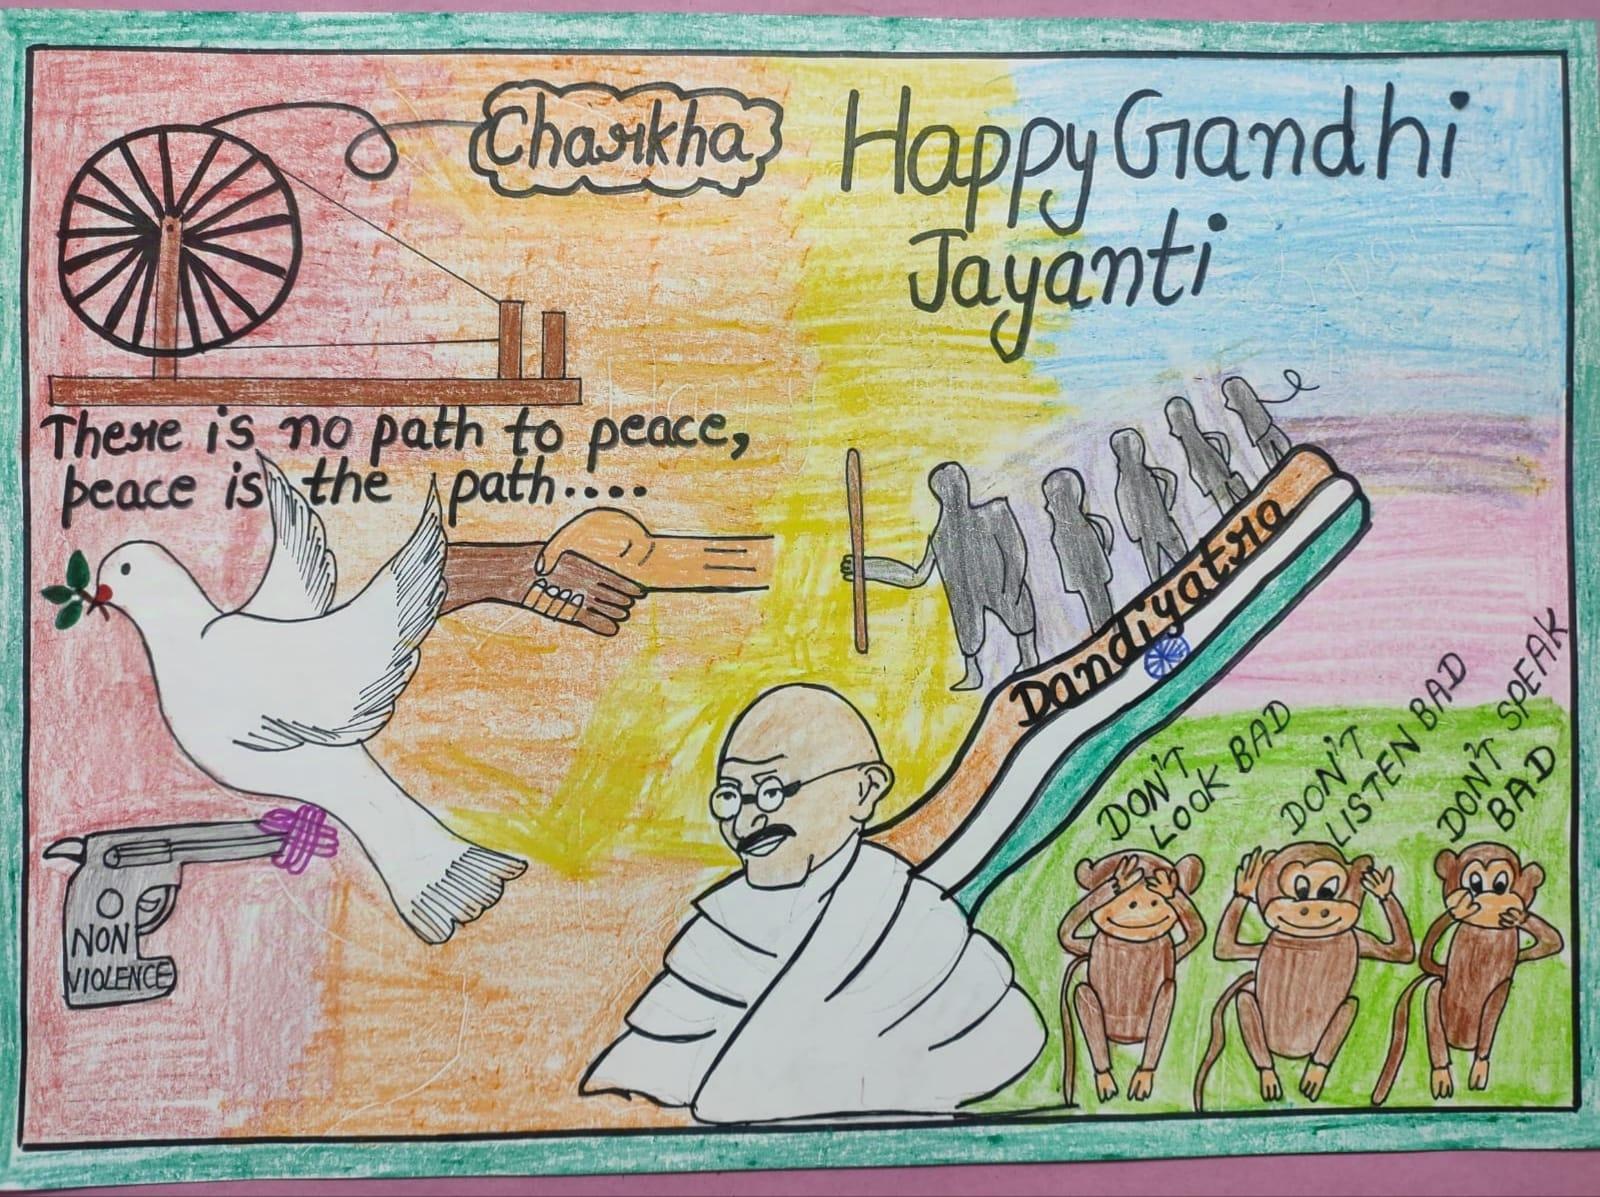 Charkha
Happy Gandhi
Jayanti
There is no path to peace,
peace is the path....
Dandiyatra
DON'T
LOOK BAD
DON'T
LISTEN BAD
DON'T SPEAK
BAD
NON
VIOLENCE